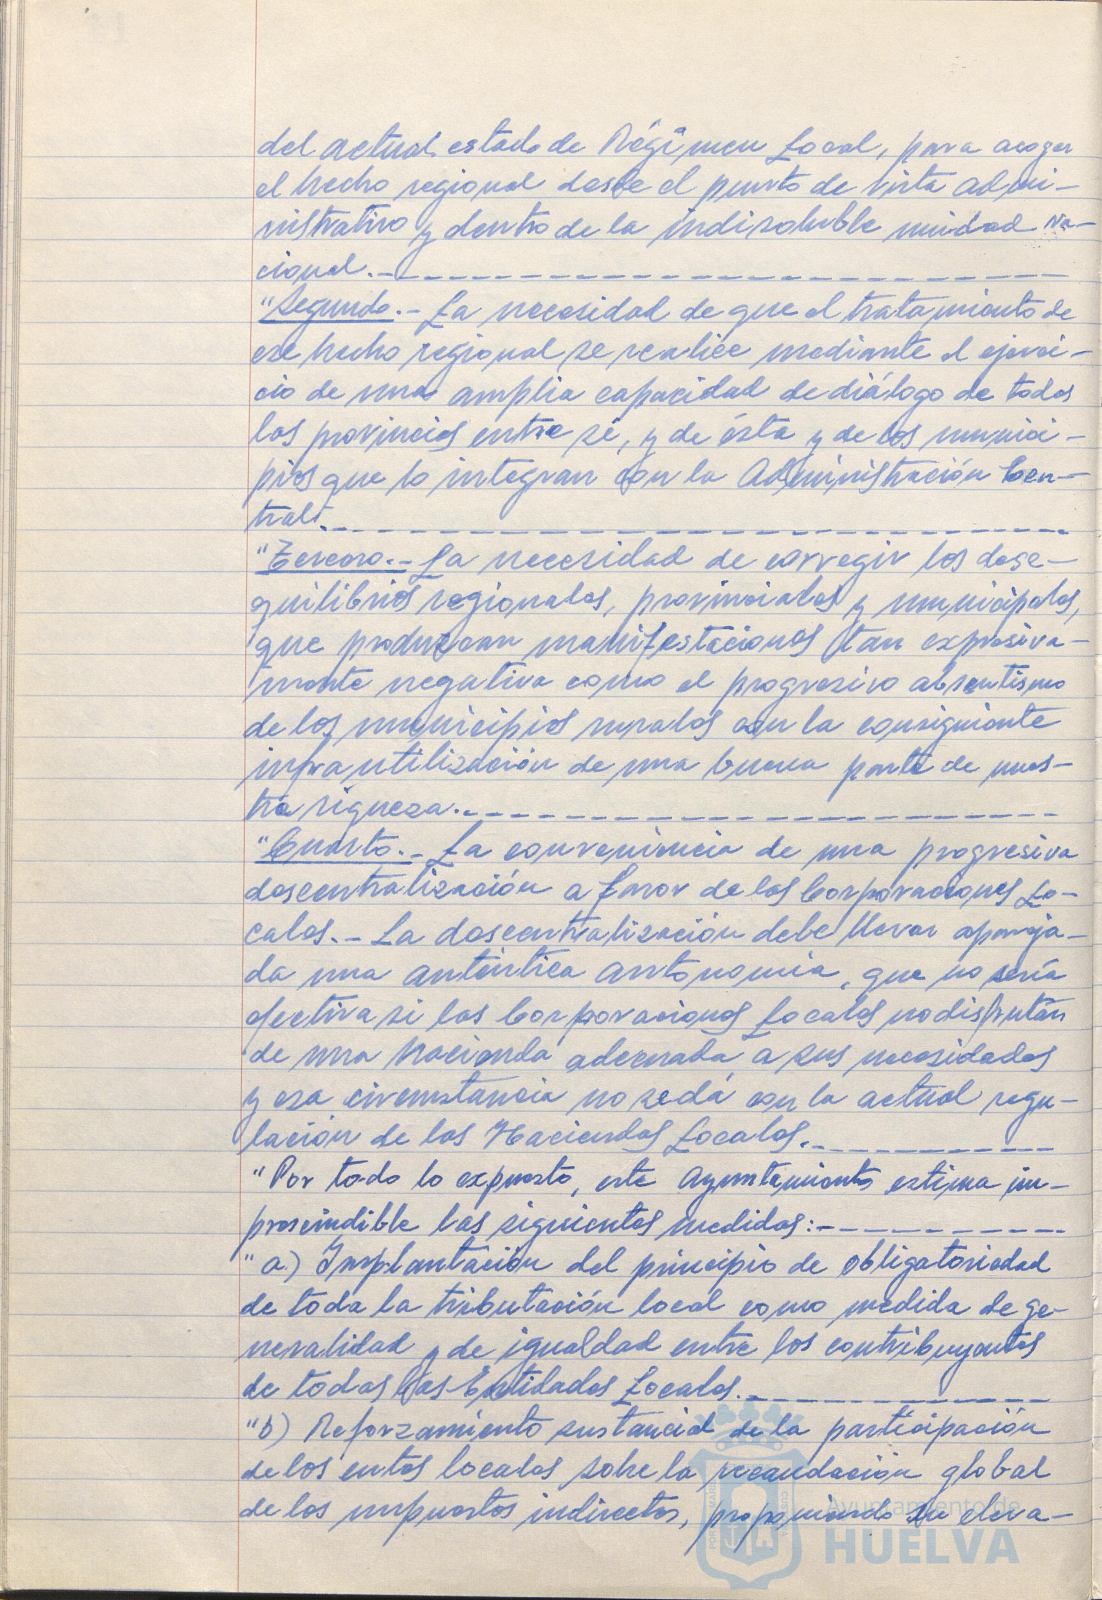 del actual estado de Régimen Local, para acoger
el hecho regional desde el punto de vista admi-
nistrativo y dentro de la indisoluble unidad Na-
cional.-
"Segundo.- La necesidad de que el tratamiento de
ese hecho regional se realice mediante el ejerci-
cio de una amplia capacidad de diálogo de todas
las provincias entre sí, y de ésta y de los munici-
pios que la integran con la Administración Cen-
tral.
"Tercero.- La necesidad de corregir los dese-
quilibrios regionales, provinciales y municipales,
que produzcan manifestaciones tan expresiva-
mente negativa como el progresivo absentismo
de los municipios rurales con la consiguiente
infrautilización de una buena parte de nues-
tra riqueza.-
"Cuarto.- La conveniencia de una progresiva
descentralización a favor de las Corporaciones Lo-
cales.- La descentralización debe llevar apareja-
da una auténtica autonomía, que no sería
efectiva si las Corporaciones Locales no disfrután
de una hacienda adecuada a sus necesidades
y esa circunstancia no se dá con la actual regu-
lación de las Haciendas Locales.-
"Por todo lo expuesto, este Ayuntamiento estima im-
prescindible las siguientes medidas:-
"a) Implantación del principio de obligatoriedad
de toda la tributación local como medida de ge-
neralidad y de igualdad entre los contribuyentes
de todas las Entidades Locales.-
"b) Reforzamiento sustancial de la participación
de los entes locales sobre la recaudación global
de los impuestos indirectos, proponiendo su eleva-
Ayuntamiento de
HUELVA